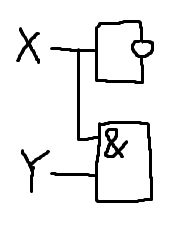 X
&
Y